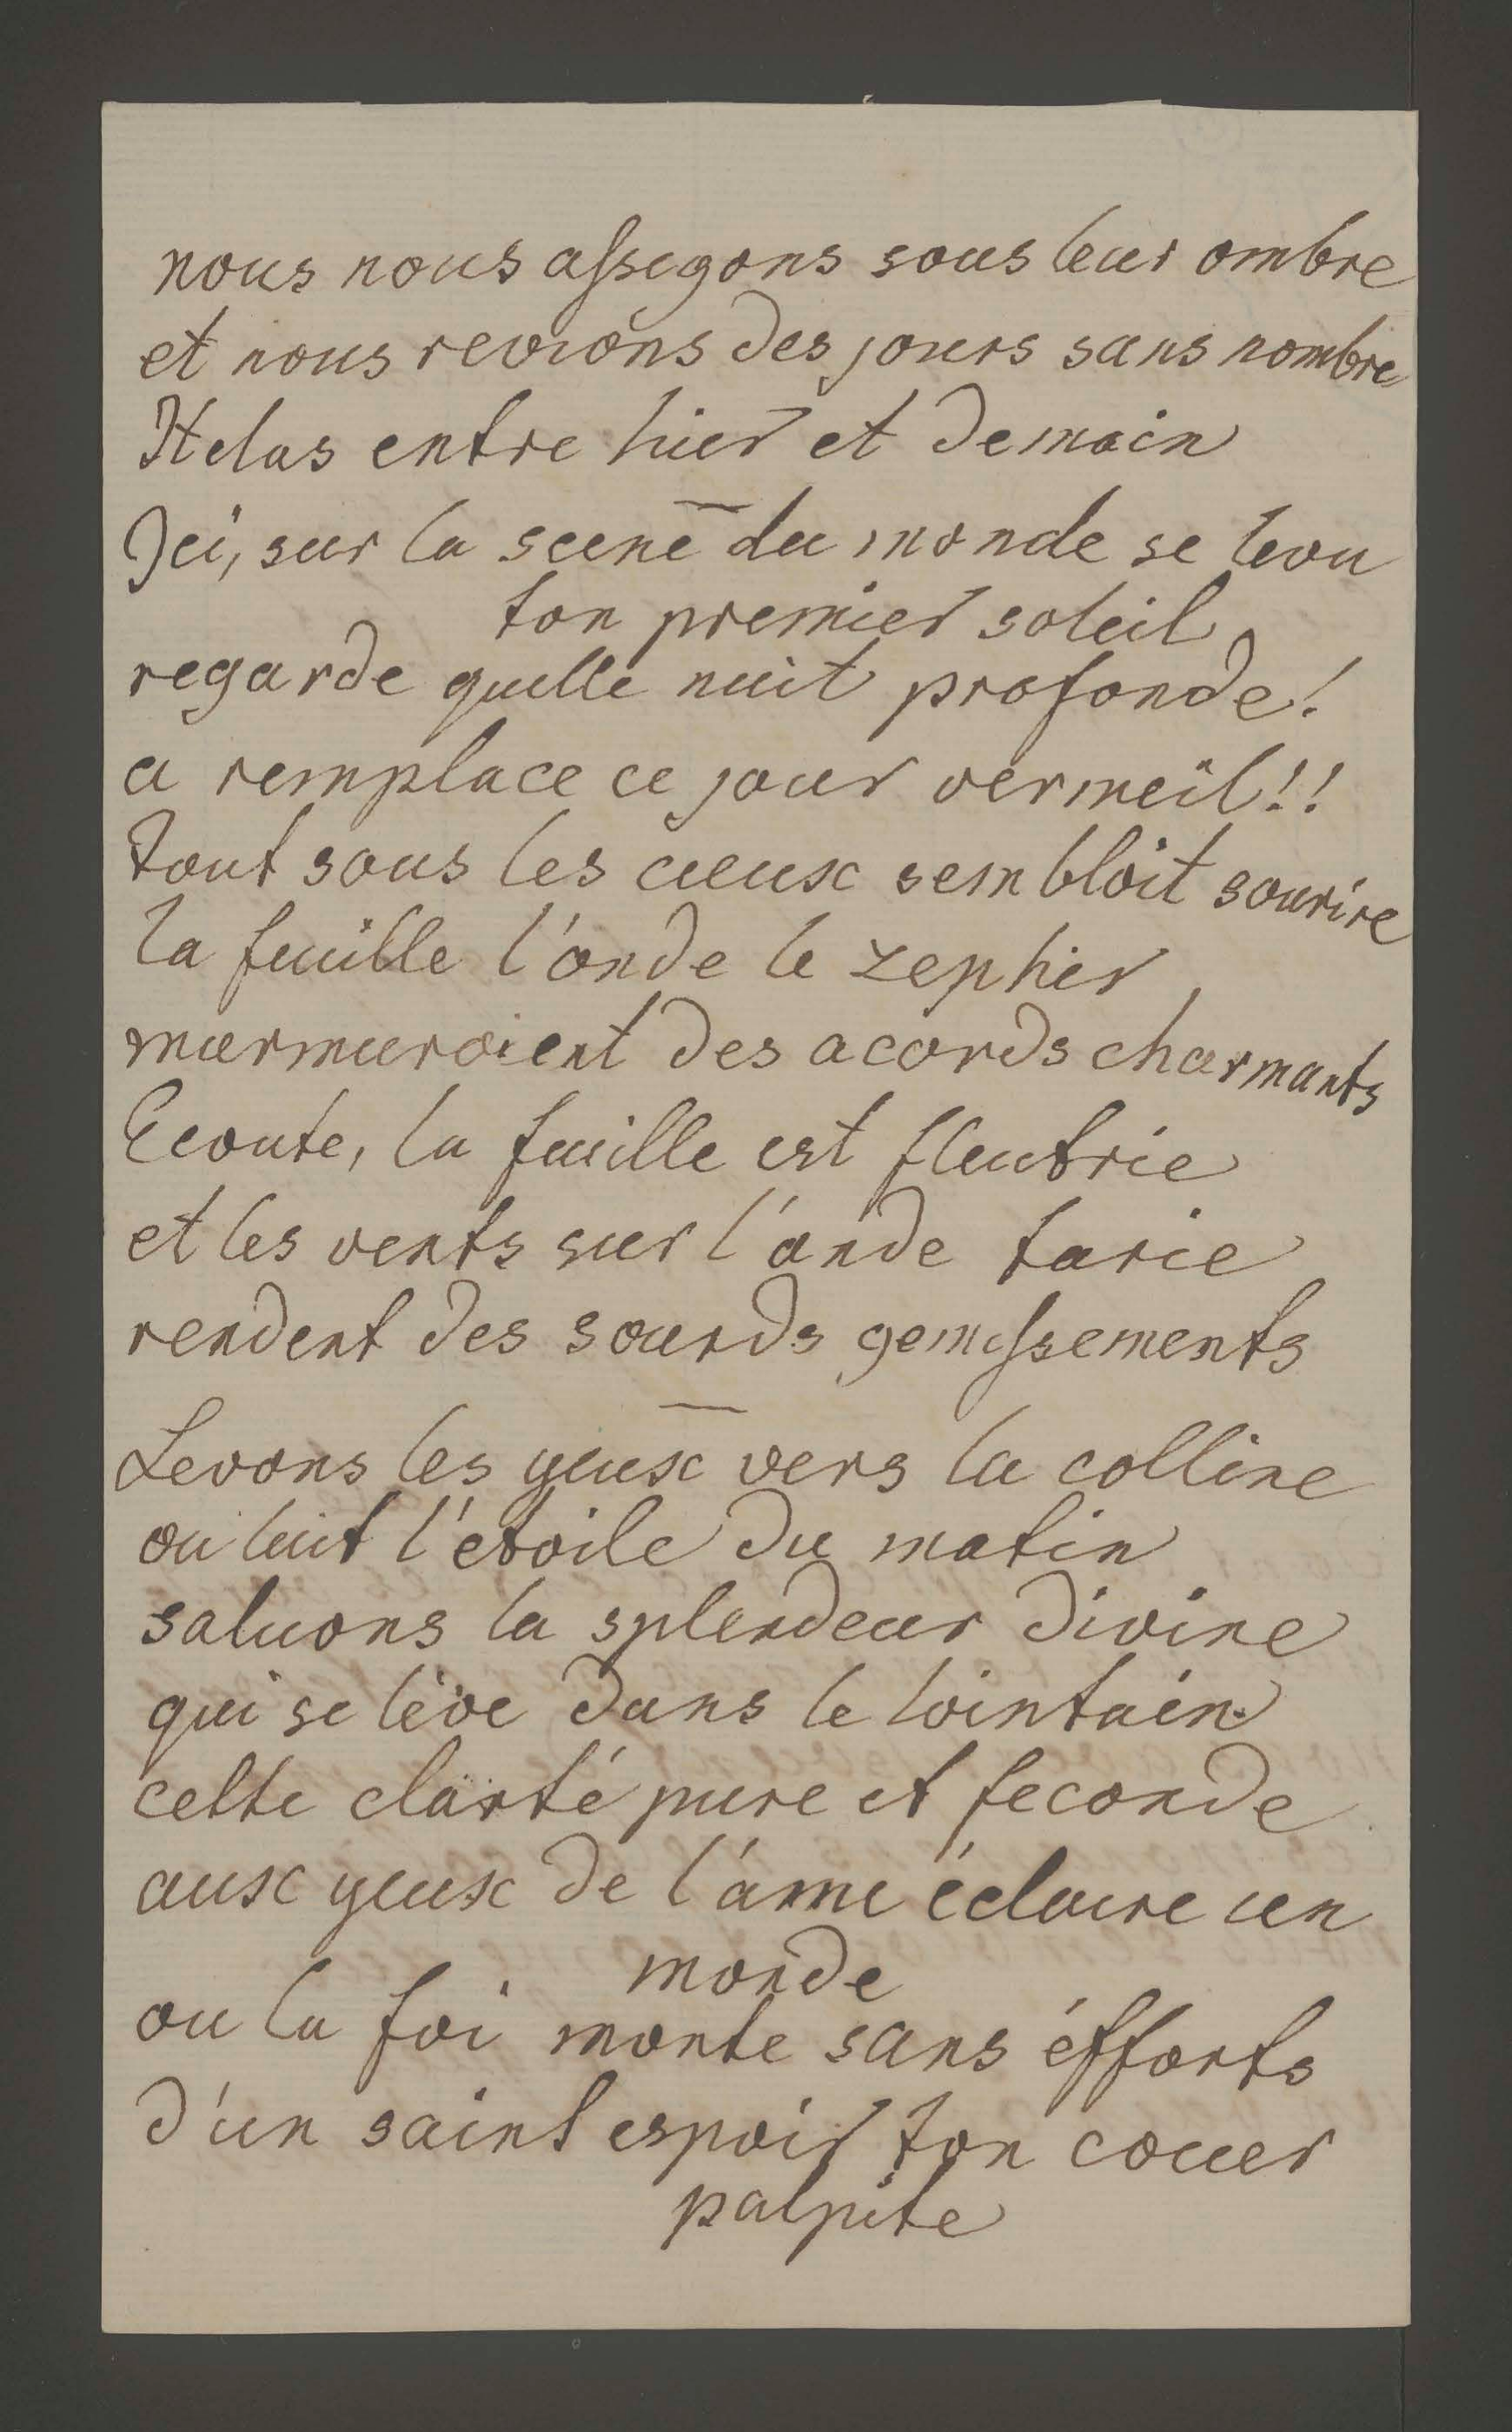 nous nous assegons sous leur ombre
et nous revions des jours sans nombre
Helas entre hier et demain
—
Ici, sur la scene du monde se leva
ton premier soleil
regarde quelle nuit profonde!
a remplace ce jour vermeil!!
tout sous les cieux sembloit sourire
la feuille l'onde le zephir
murmuroient des acords charmants
Ecoute, la feuille est fleutrie
et les vents sur l'onde tarie
rendent des sourds gemissements
—
Levons les yeux vers la colline
ou luit l'etoile du matin
saluons la splendeur divine
qui se lève dans le lointain
cette clarté pure et feconde
aux yeux de l'ame éclaire un
monde
ou la foi monte sans éfforts
d'un saint espoir ton coeur
palpite